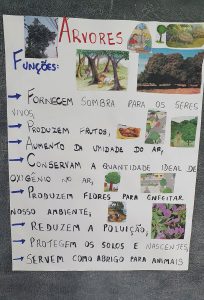 ÁRVORES
FUNÇÕES:
→ FORNECEM SOMBRA PARA OS SERES
VIVOS,
→ PRODUZEM FRUTOS,
→ AUMENTO DA UMIDADE DO AR,
→ CONSERVAM A QUANTIDADE IDEAL DE
OXIGÊNIO NO AR,
→ PRODUZEM FLORES PARA ENFEITAR
NOSSO AMBIENTE,
→ REDUZEM A POLUIÇÃO,
→ PROTEGEM OS SOLOS E NASCENTES,
→ SERVEM COMO ABRIGO PARA ANIMAIS